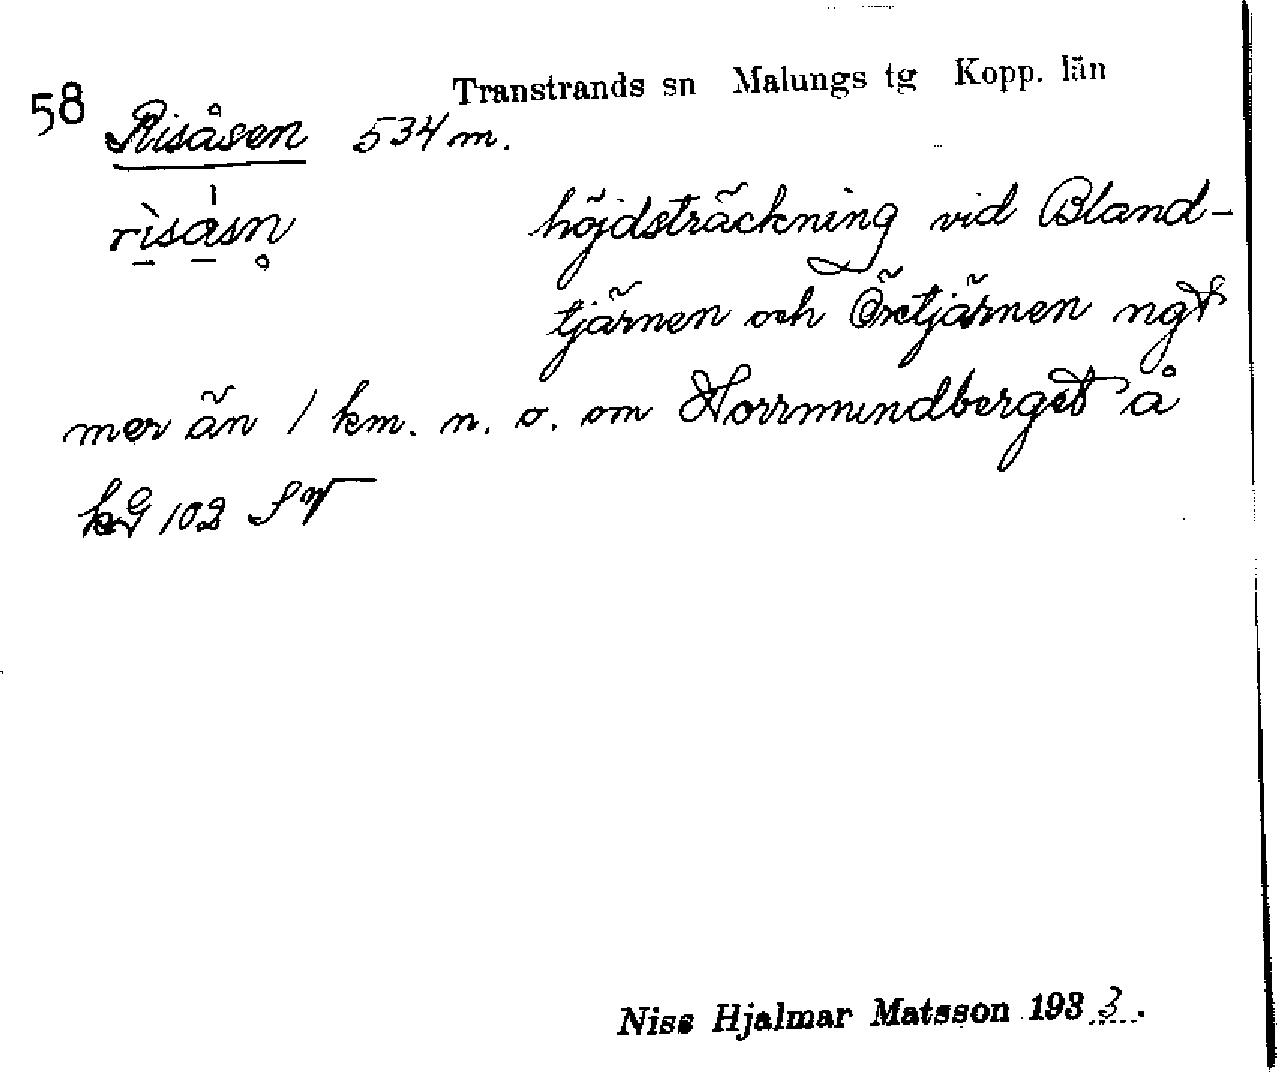 Transtrands sn Malungs tg Kopp. län
58 Risåsen 534 m.
risåsn höjdsträckning vid Bland-
tjärnen och Öretjärnen ngt
mer än 1 km. n. o. om Horrmundberget å
kg 102 SV
Niss Hjalmar Matsson 1933.